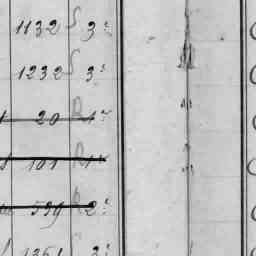 1132 S 3
1232 S 3
20 R 4
101 R 4
539 R 2
1361 3